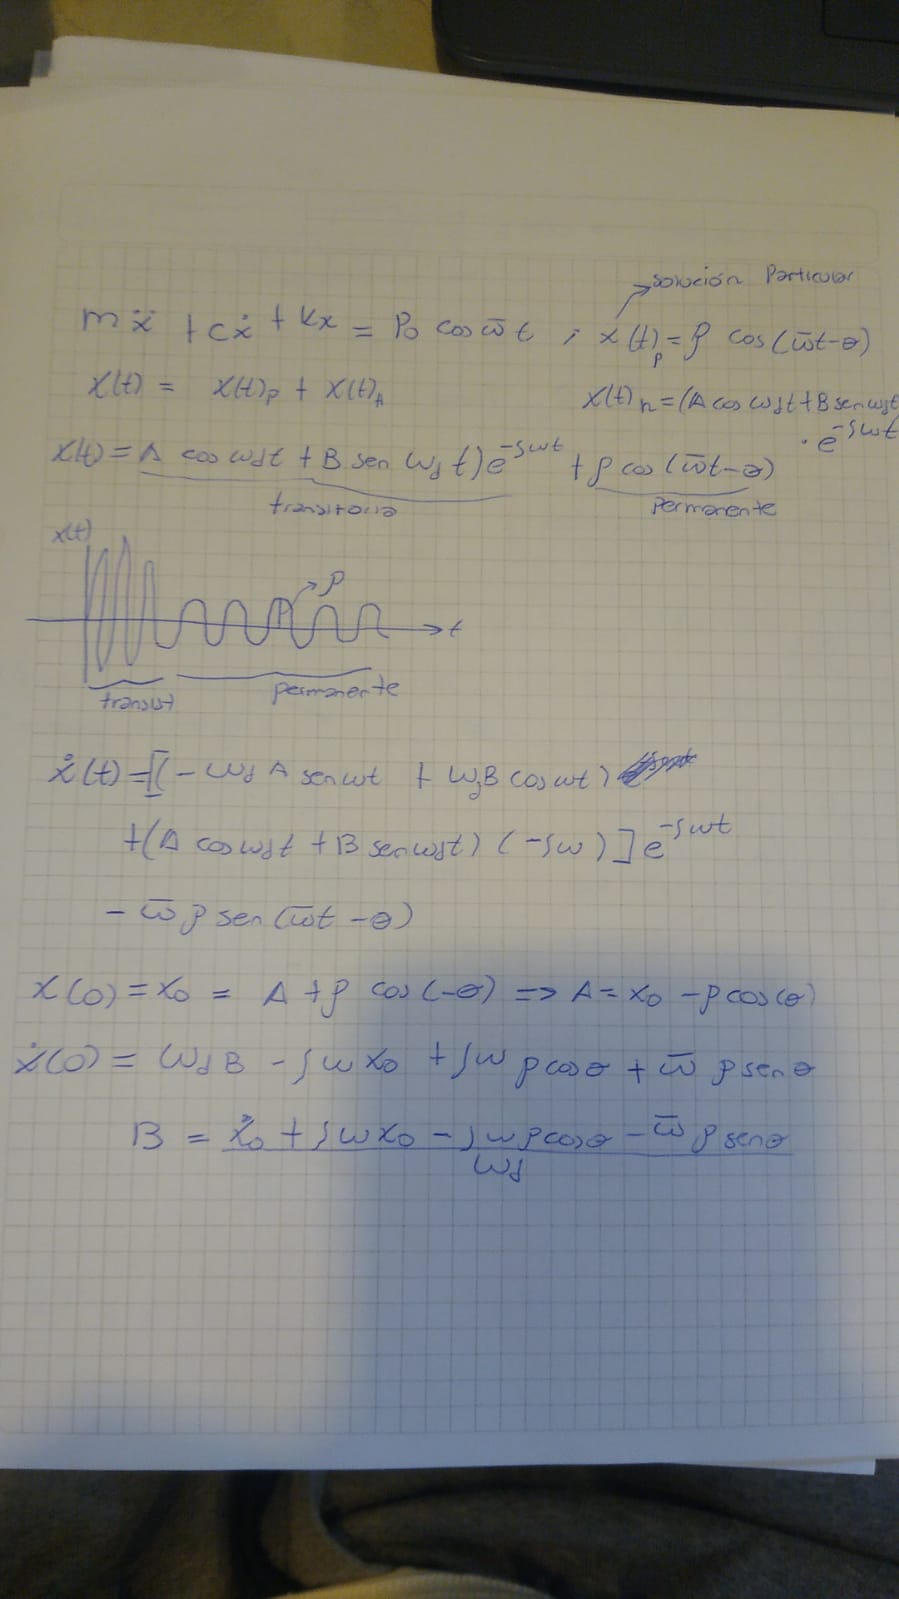 solución Particular
mẍ + cẋ + kx = P₀ cos ω̄t ; x(t)ₚ = ρ cos(ω̄t-θ)
x(t) = x(t)ₚ + x(t)ₕ
x(t)ₕ = (A cos ω_d t + B sen ω_d t
· e^{-ζωt}
x(t) = A cos ω_d t + B sen ω_d t) e^{-ζωt} + ρ cos(ω̄t-θ)
transitoria permanente
x(t)
ρ
t
transist permanente
ẋ(t) = [(-ω_d A sen ωt + ω_d B cos ωt)
+(A cos ω_d t + B sen ω_d t) (-ζω)] e^{-ζωt}
- ω̄ ρ sen(ω̄t-θ)
x(0) = x₀ = A + ρ cos(-θ) => A = x₀ - ρ cos(θ)
ẋ(0) = ω_d B - ζω x₀ + ζω ρ cos θ + ω̄ ρ sen θ
B = ẋ₀ + ζω x₀ - ζω ρ cos θ - ω̄ ρ sen θ
ω_d